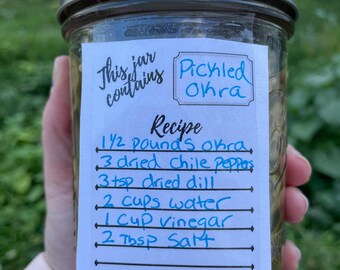 This jar
contains
Pickled
Okra
Recipe
1 1/2 pounds okra
3 dried chile peppers
3 tsp dried dill
2 cups water
1 cup vinegar
2 Tbsp Salt